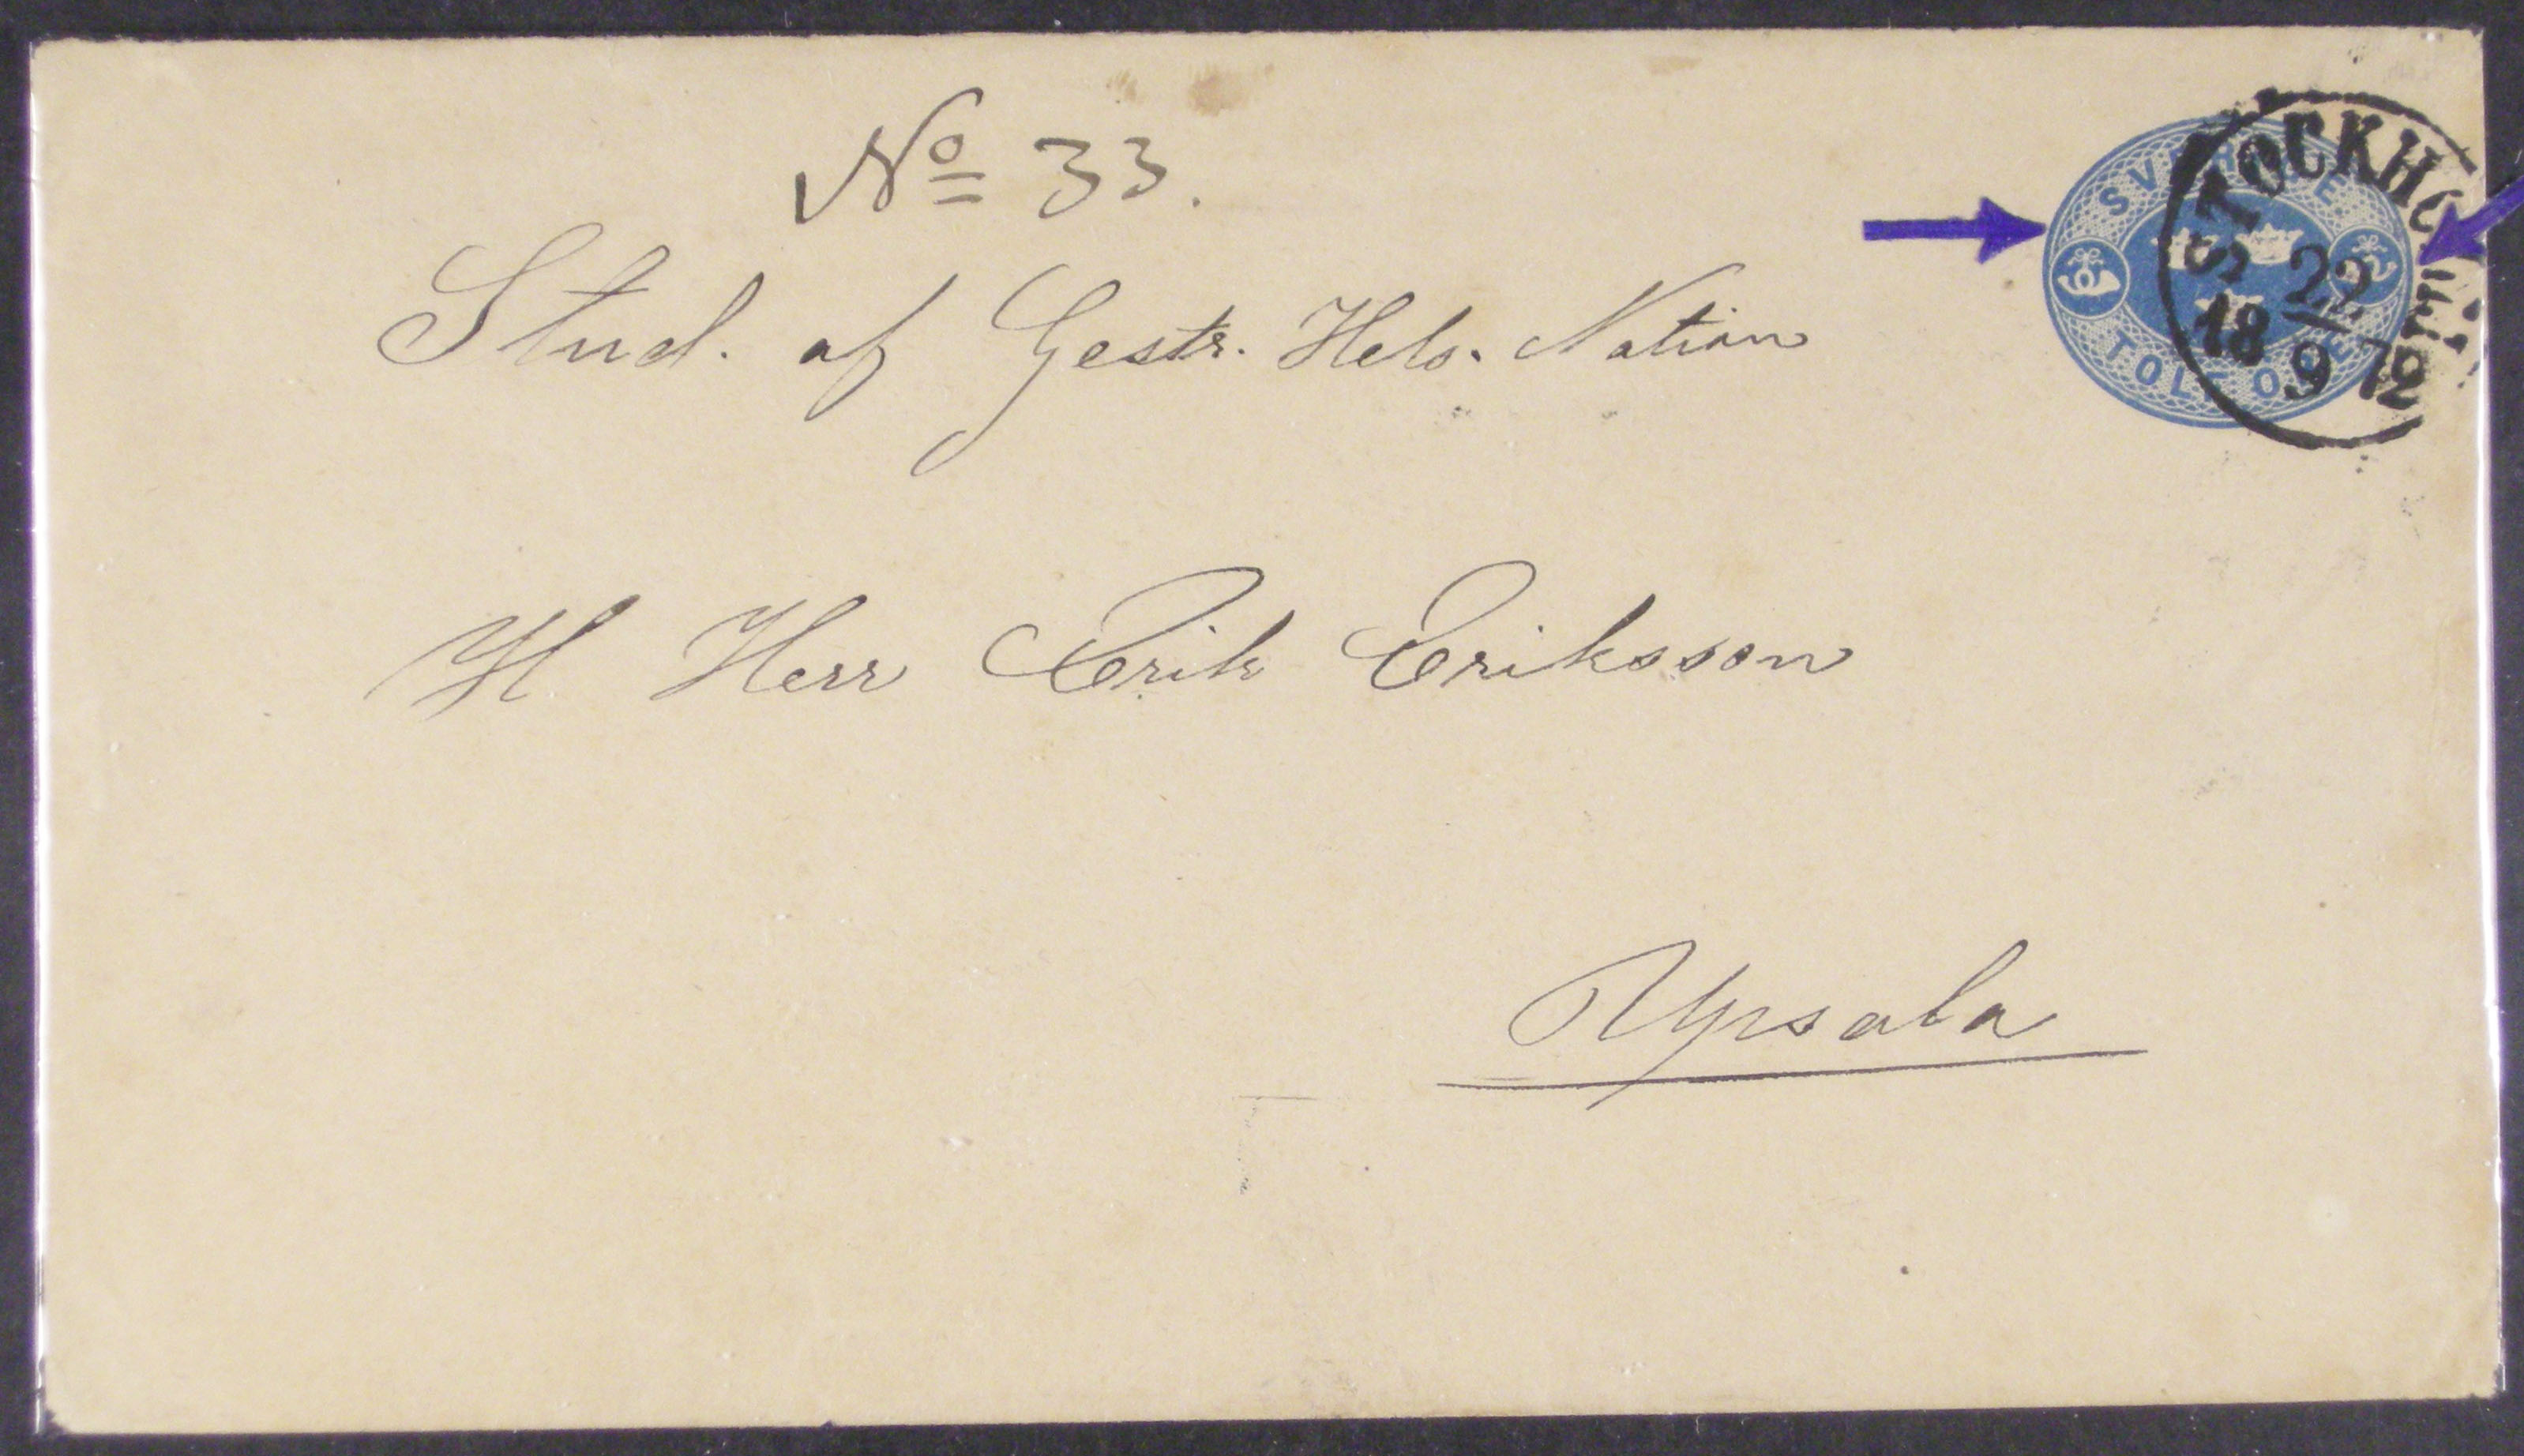 No 33.
Stud. af Gestr. Hels. Nation
H Herr Erik Eriksson
Upsala
SVERIGE
TOLF ÖRE
STOCKHOLM
22
18 9 72